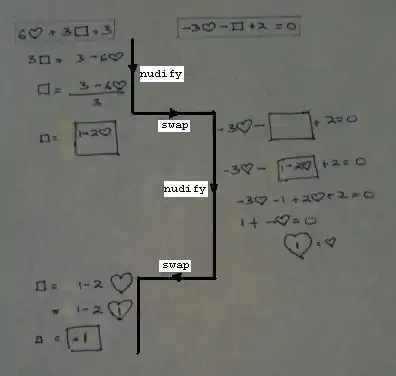 6♡ + 3□ = 3
-3♡ - □ + 2 = 0
3□ = 3 - 6♡
nudify
□ = 3 - 6♡
3
□ = 1-2♡
swap
-3♡ - □ + 2 = 0
-3♡ - 1-2♡ + 2 = 0
nudify
-3♡ - 1 + 2♡ + 2 = 0
1 + -♡ = 0
1 = ♡
swap
□ = 1 - 2 ♡
= 1 - 2 1
□ = -1